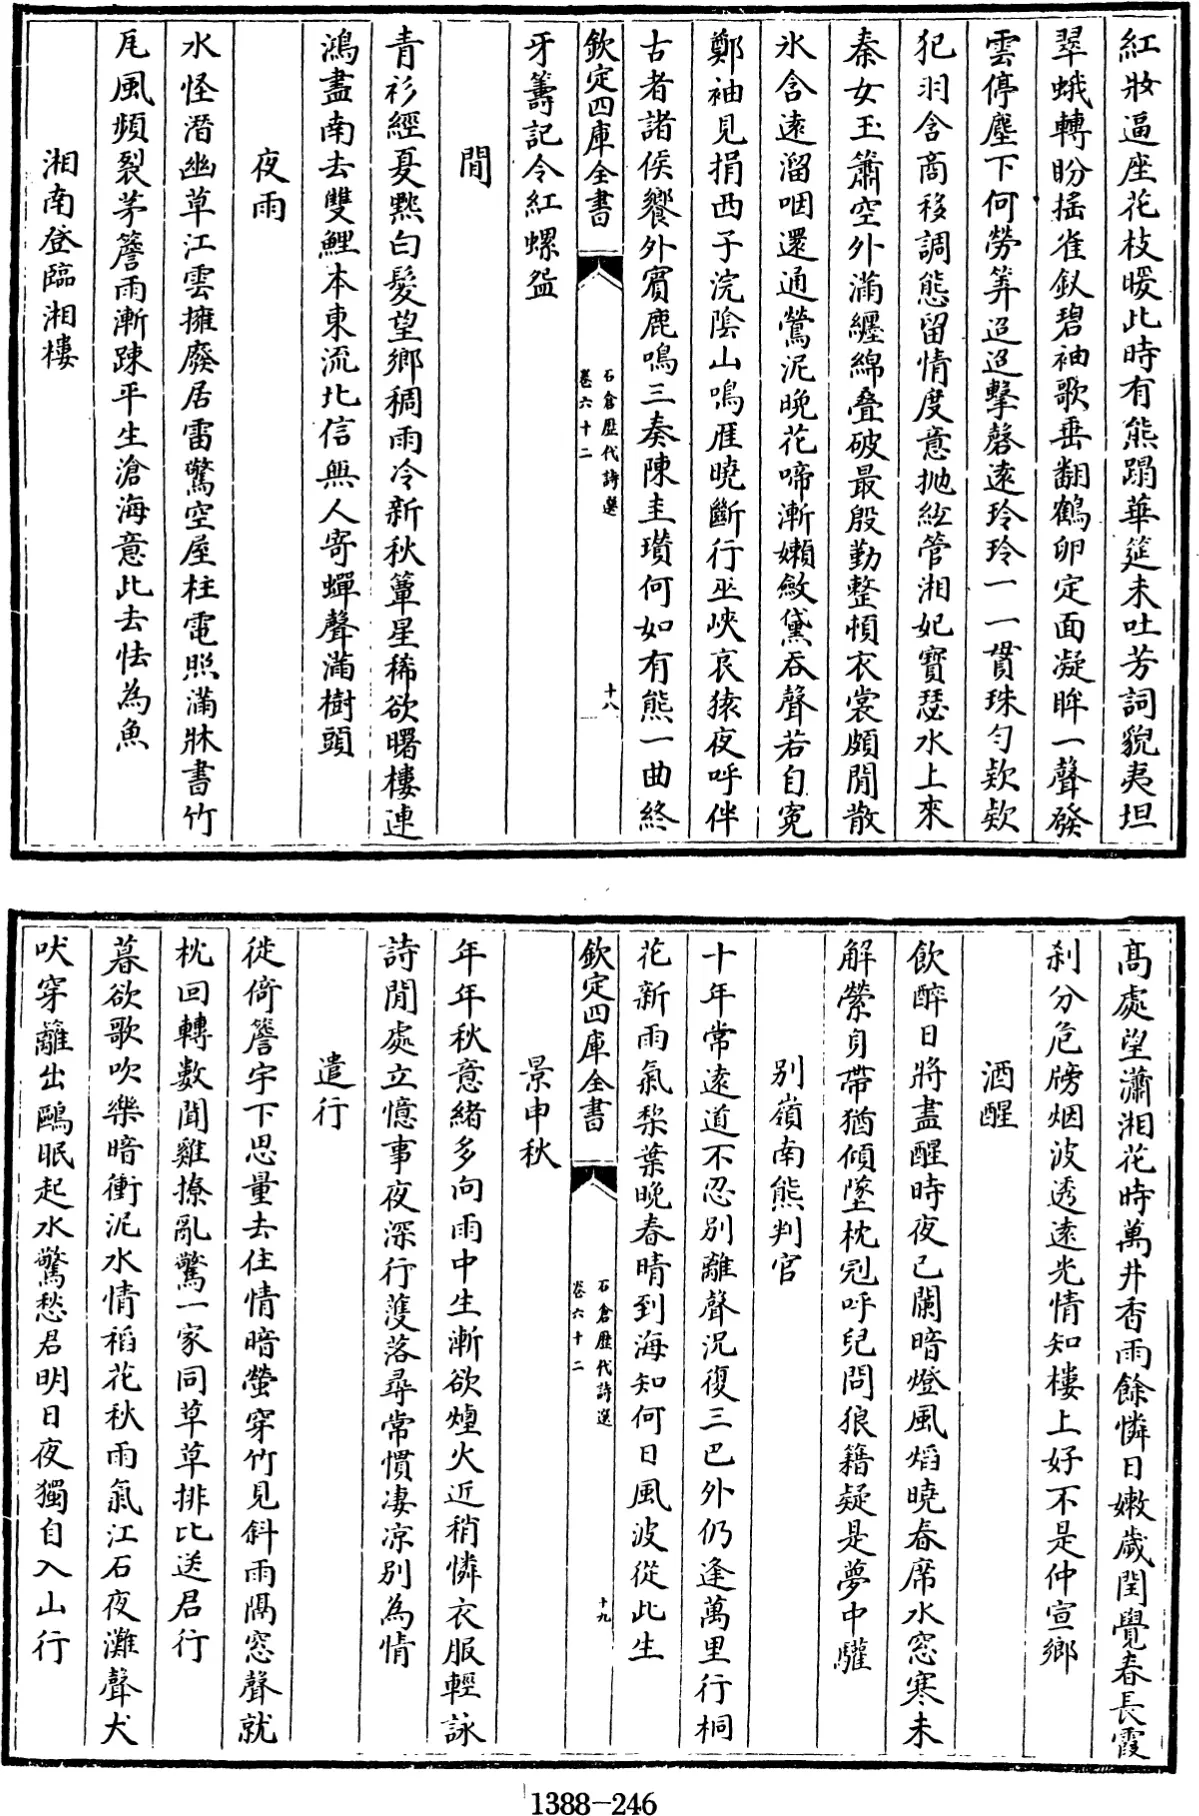 紅妝逼座花枝暖此時有熊踢華筵未吐芳詞貌夷坦
翠蛾轉盼搖雀釵碧袖歌垂翻鶴卵定面凝眸一聲發
雲停塵下何勞筭迢迢擊磬遠玲玲一一貫珠勻款款
犯羽含商移調態留情度意拋絃管湘妃寶瑟水上來
秦女玉簫空外滿纏綿疊破最殷勤整頓衣裳頗閒散
氷含遠溜咽還通鶯泥晚花啼漸嬾斂黛吞聲若自寃
鄭袖見捐西子浣陰山鳴雁曉斷行巫峽哀猿夜呼伴
古者諸侯饗外賓鹿鳴三奏陳圭瓚何如有熊一曲終
欽定四庫全書
石倉歷代詩選
卷六十二
十八
牙籌記令紅螺盌
閒
青衫經夏黕白髮望鄉稠雨冷新秋簟星稀欲曙樓連
鴻盡南去雙鯉本東流北信無人寄蟬聲滿樹頭
夜雨
水怪潛幽草江雲擁廢居雷驚空屋柱電照滿牀書竹
瓦風頻裂茅簷雨漸踈平生滄海意此去怯為魚
湘南登臨湘樓
高處望瀟湘花時萬井香雨餘憐日嫩歲閏覺春長霞
刹分危牓烟波透遠光情知樓上好不是仲宣鄉
酒醒
飲醉日將盡醒時夜已闌暗燈風焰曉春席水窓寒未
解縈身帶猶傾墜枕冠呼兒問狼籍疑是夢中驩
別嶺南熊判官
十年常遠道不忍別離聲況復三巴外仍逢萬里行桐
花新雨氣梨葉晚春晴到海知何日風波從此生
欽定四庫全書
石倉歷代詩選
卷六十二
十九
景申秋
年年秋意緒多向雨中生漸欲煙火近稍憐衣服輕詠
詩閒處立憶事夜深行濩落尋常慣凄凉別為情
遣行
徙倚簷宇下思量去住情暗螢穿竹見斜雨隔窓聲就
枕回轉數聞雞撩亂驚一家同草草排比送君行
暮欲歌吹樂暗衝泥水情稻花秋雨氣江石夜灘聲犬
吠穿籬出鷗眠起水驚愁君明日夜獨自入山行
1388-246